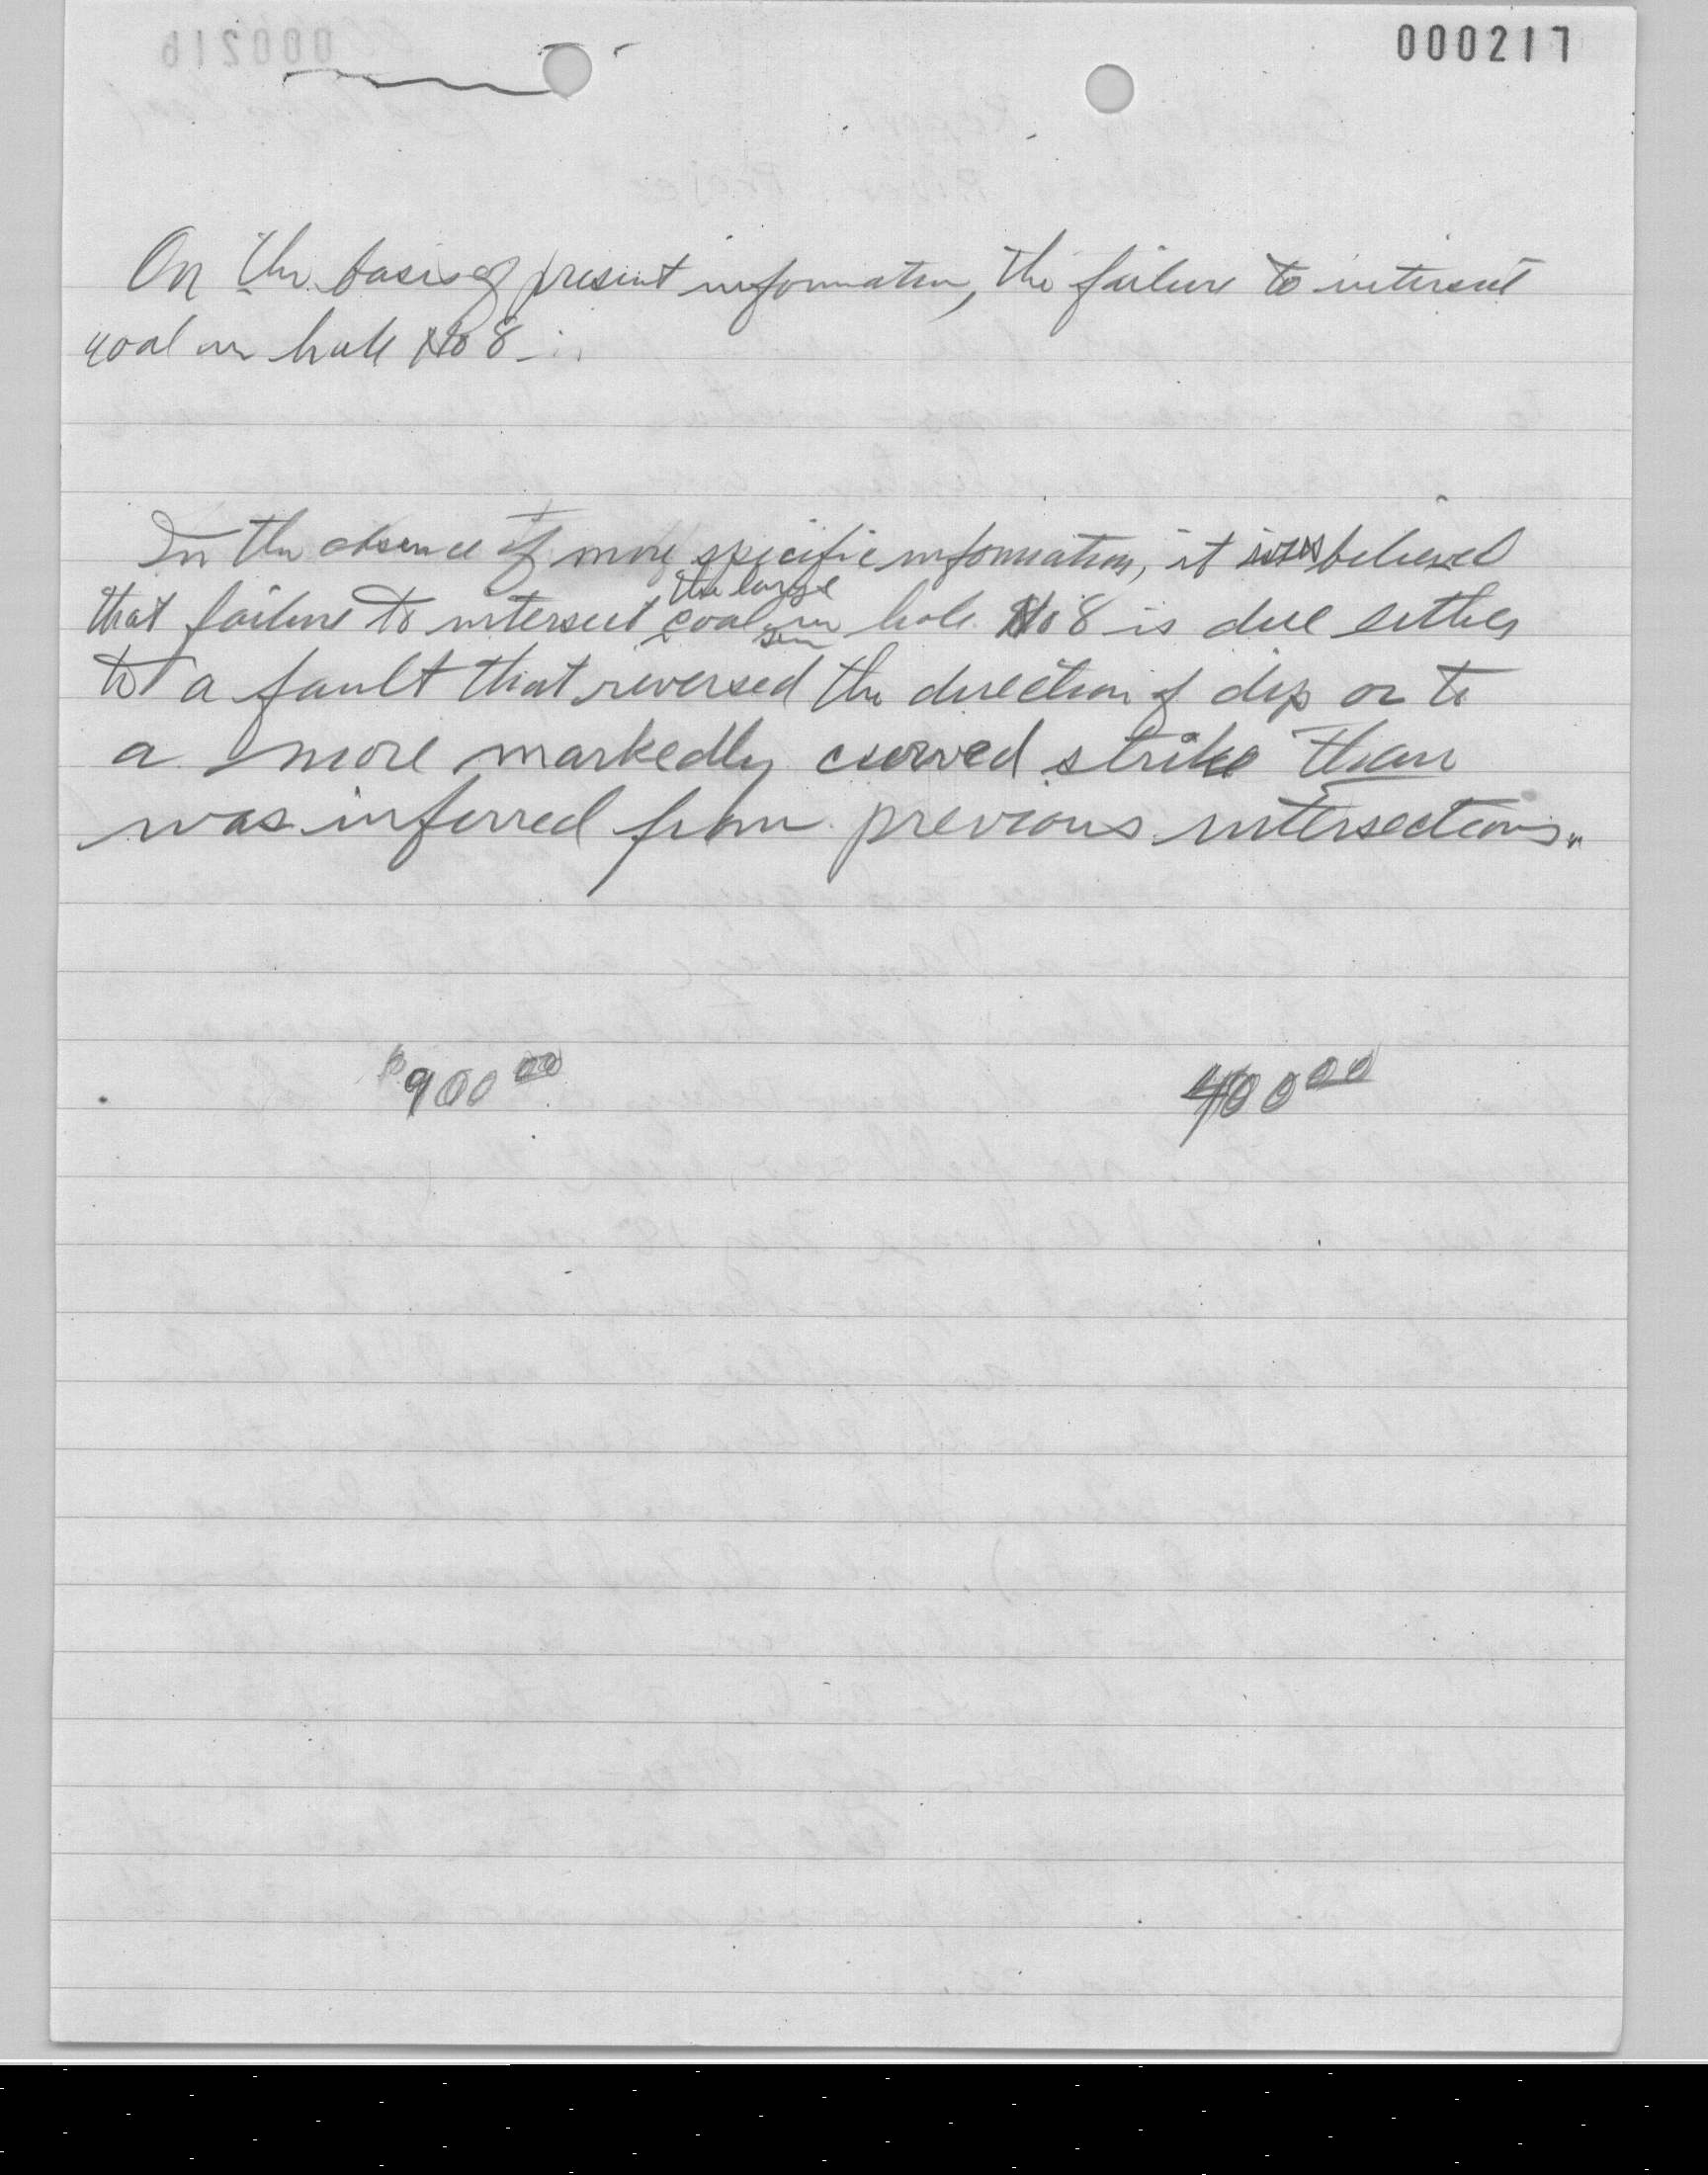 000217
On the basis of present information, the failure to intersect
coal in hole No 8
In the absence of more specific information, it is believed
the large
that failure to intersect coal in hole No 8 is due either
seam
to a fault that reversed the direction of dip or to
a more markedly curved strike than
was inferred from previous intersections.
$900.00 400.00